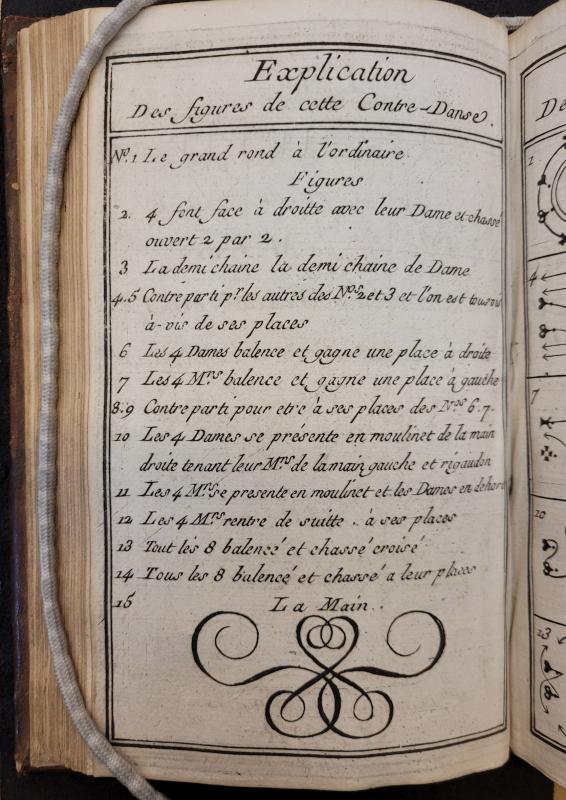 Explication
Des figures de cette Contre-Danse.
No. 1 Le grand rond à l'ordinaire
Figures
2. 4 font face à droitte avec leur Dame et chassé
ouvert 2 par 2.
3 La demi chaine la demi chaine de Dame
4.5 Contre parti pr. les autres des Nos. 2 et 3 et l'on est tous vis
à-vis de ses places
6 Les 4 Dames balence et gagne une place à droite
7 Les 4 Mrs balence et gagne une place à gauche
8.9 Contre parti pour etre à ses places des Nos 6.7.
10 Les 4 Dames se présente en moulinet de la main
droite tenant leur Mrs de la main gauche et rigaudon
11 Les 4 Mrs se presente en moulinet et les Dames en dehors
12 Les 4 Mrs rentre de suitte à ses places
13 Tout les 8 balencé et chassé croisé
14 Tous les 8 balencé et chassé a leur places
15 La Main.
De
1
4
7
10
13